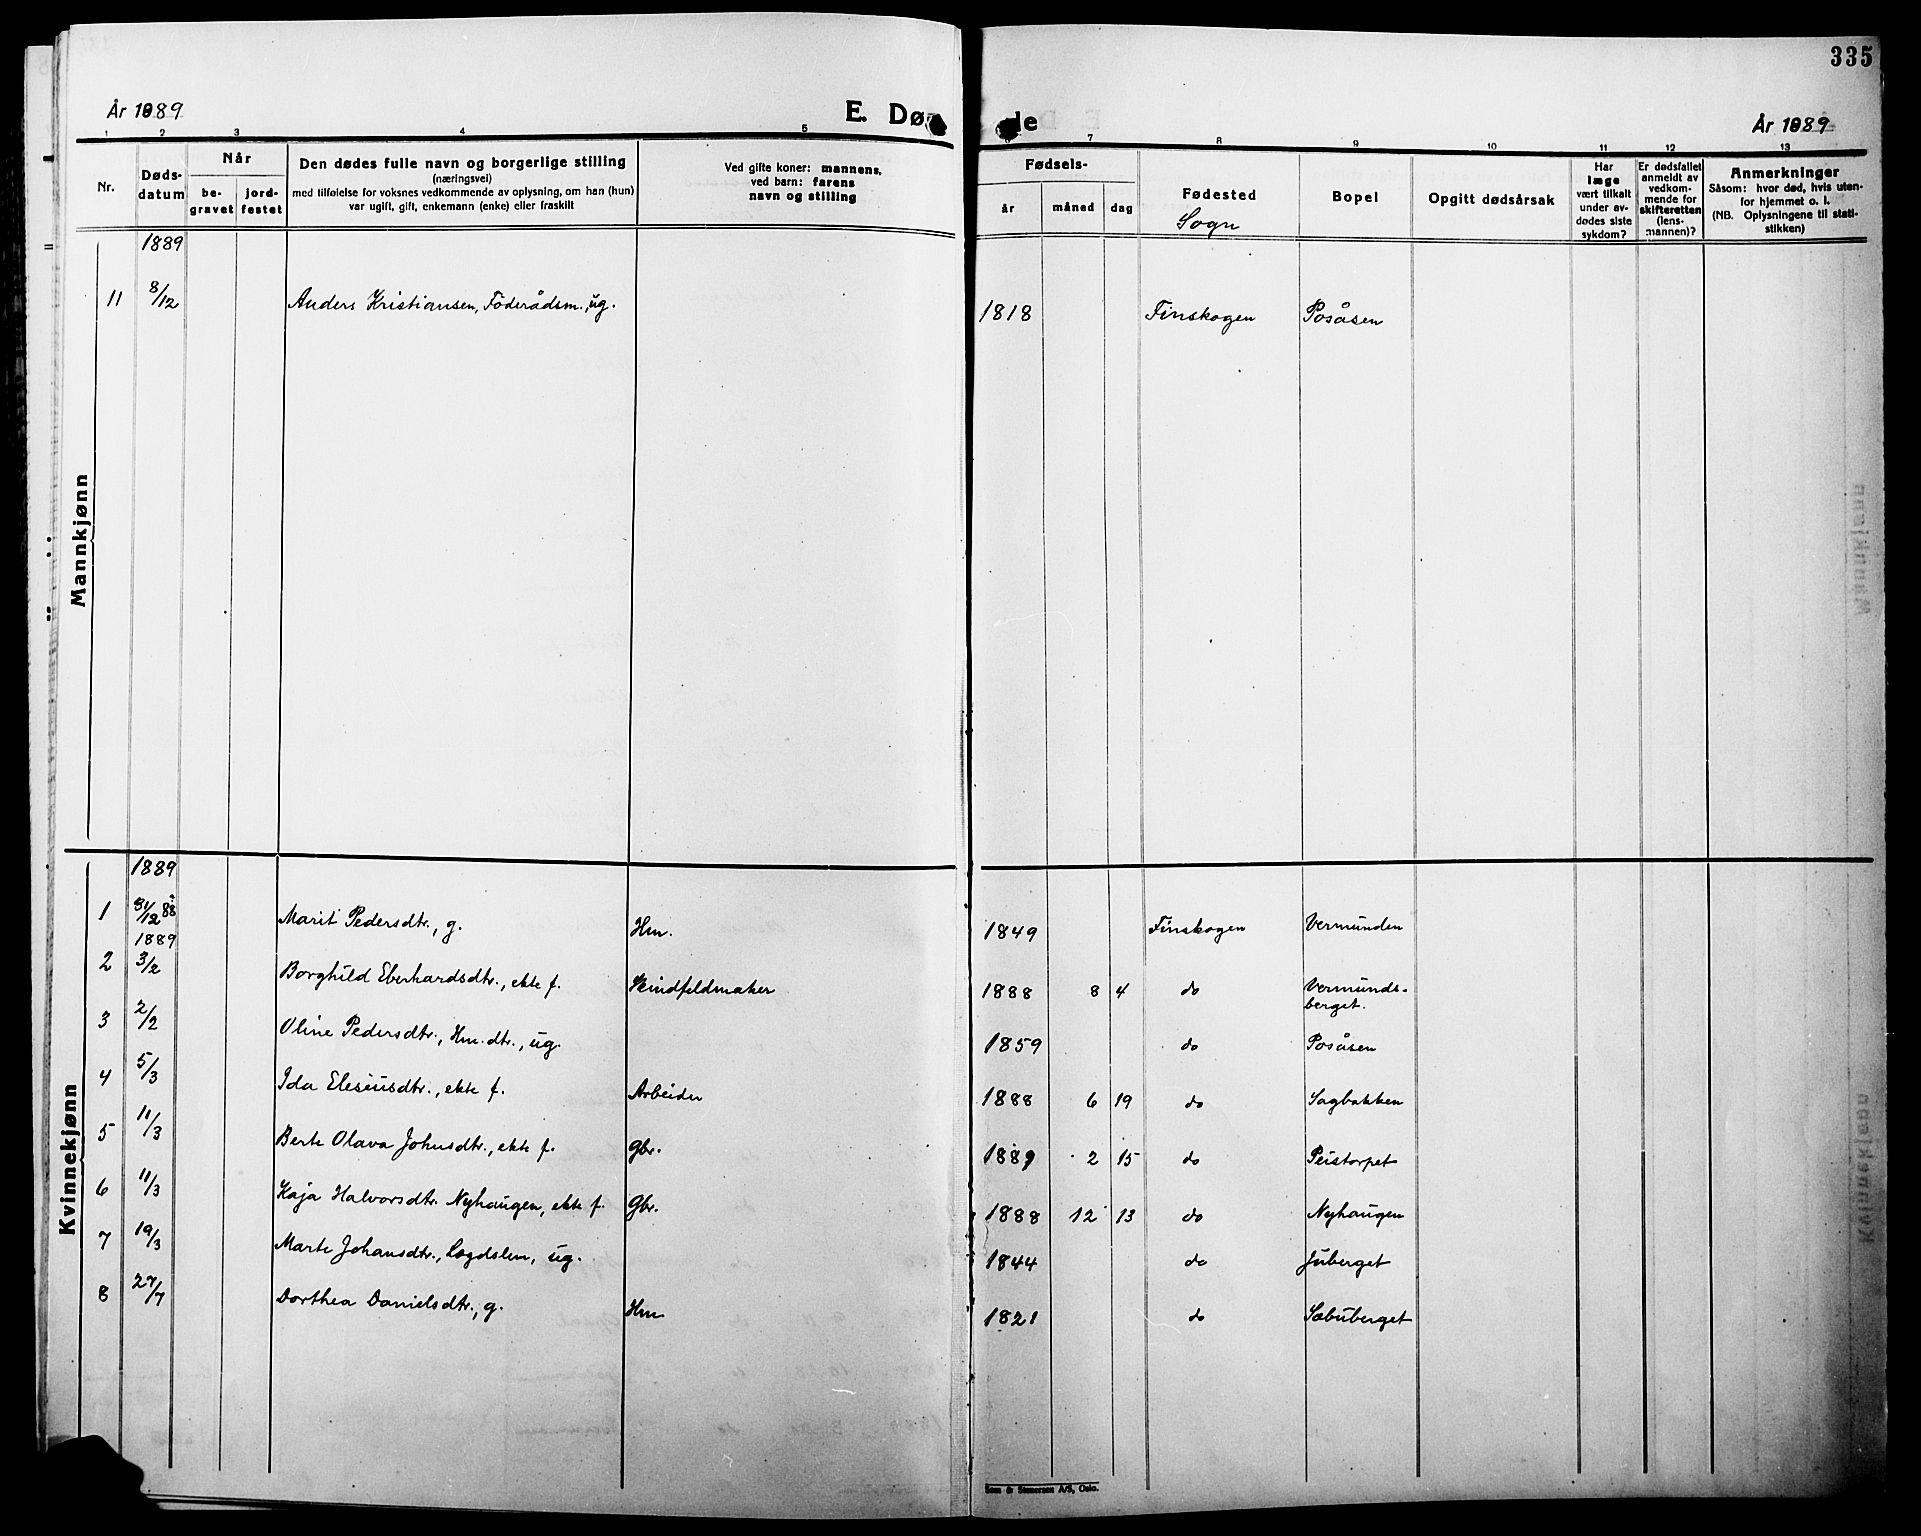 335
År 1889
E. Dø de
År 1889
1 2 3 4 5 7 8 9 10 11 12 13
Nr.
Døds-
datum
Når
be-
gravet
jord-
festet
Den dødes fulle navn og borgerlige stilling
(næringsvei)
med tilføielse for voksnes vedkommende av oplysning, om han (hun)
var ugift, gift, enkemann (enke) eller fraskilt
Ved gifte koner: mannens,
ved barn: farens
navn og stilling
Fødsels-
år måned dag
Fødested
Sogn
Bopel
Opgitt dødsårsak
Har
læge
vært tilkalt
under av-
dødes siste
sykdom?
Er dødsfallet
anmeldt av
vedkom-
mende for
skifteretten
(lens-
mannen)?
Anmerkninger
Såsom: hvor død, hvis uten-
for hjemmet o. l.
(NB. Oplysningene til stati-
stikken)
Mannkjønn
1889
11 8/12 Anders Kristiansen, Föderådsm., ug. 1818 Finskogen Posåsen
Kvinnekjønn
1889
1 31/12 88 Marit Pedersdtr., g. Hm. 1849 Finskogen Vermunden
1889
2 3/2 Borghild Eberhardsdtr., ekte f. Skindfeldmaker 1888 8 4 do Vermunds-
berget.
3 2/2 Oline Pedersdtr., Hm. dtr., ug. 1859 do Posåsen
4 5/3 Ida Elesiusdtr., ekte f. Arbeider 1888 6 19 do Sagbakken
5 11/3 Berte Olava Johnsdtr., ekte f. Gbr. 1889 2 15 do Peistorpet
6 11/3 Kaja Halvorsdtr. Nyhaugen, ekte f. Gbr. 1888 12 13 do Nyhaugen
7 19/3 Marte Johansdtr., Lægdslem, ug. 1844 do Juberget
8 27/7 Dorthea Danielsdtr., g. Hm 1821 do Sæbuberget
Sem & Stenersen A/S, Oslo.